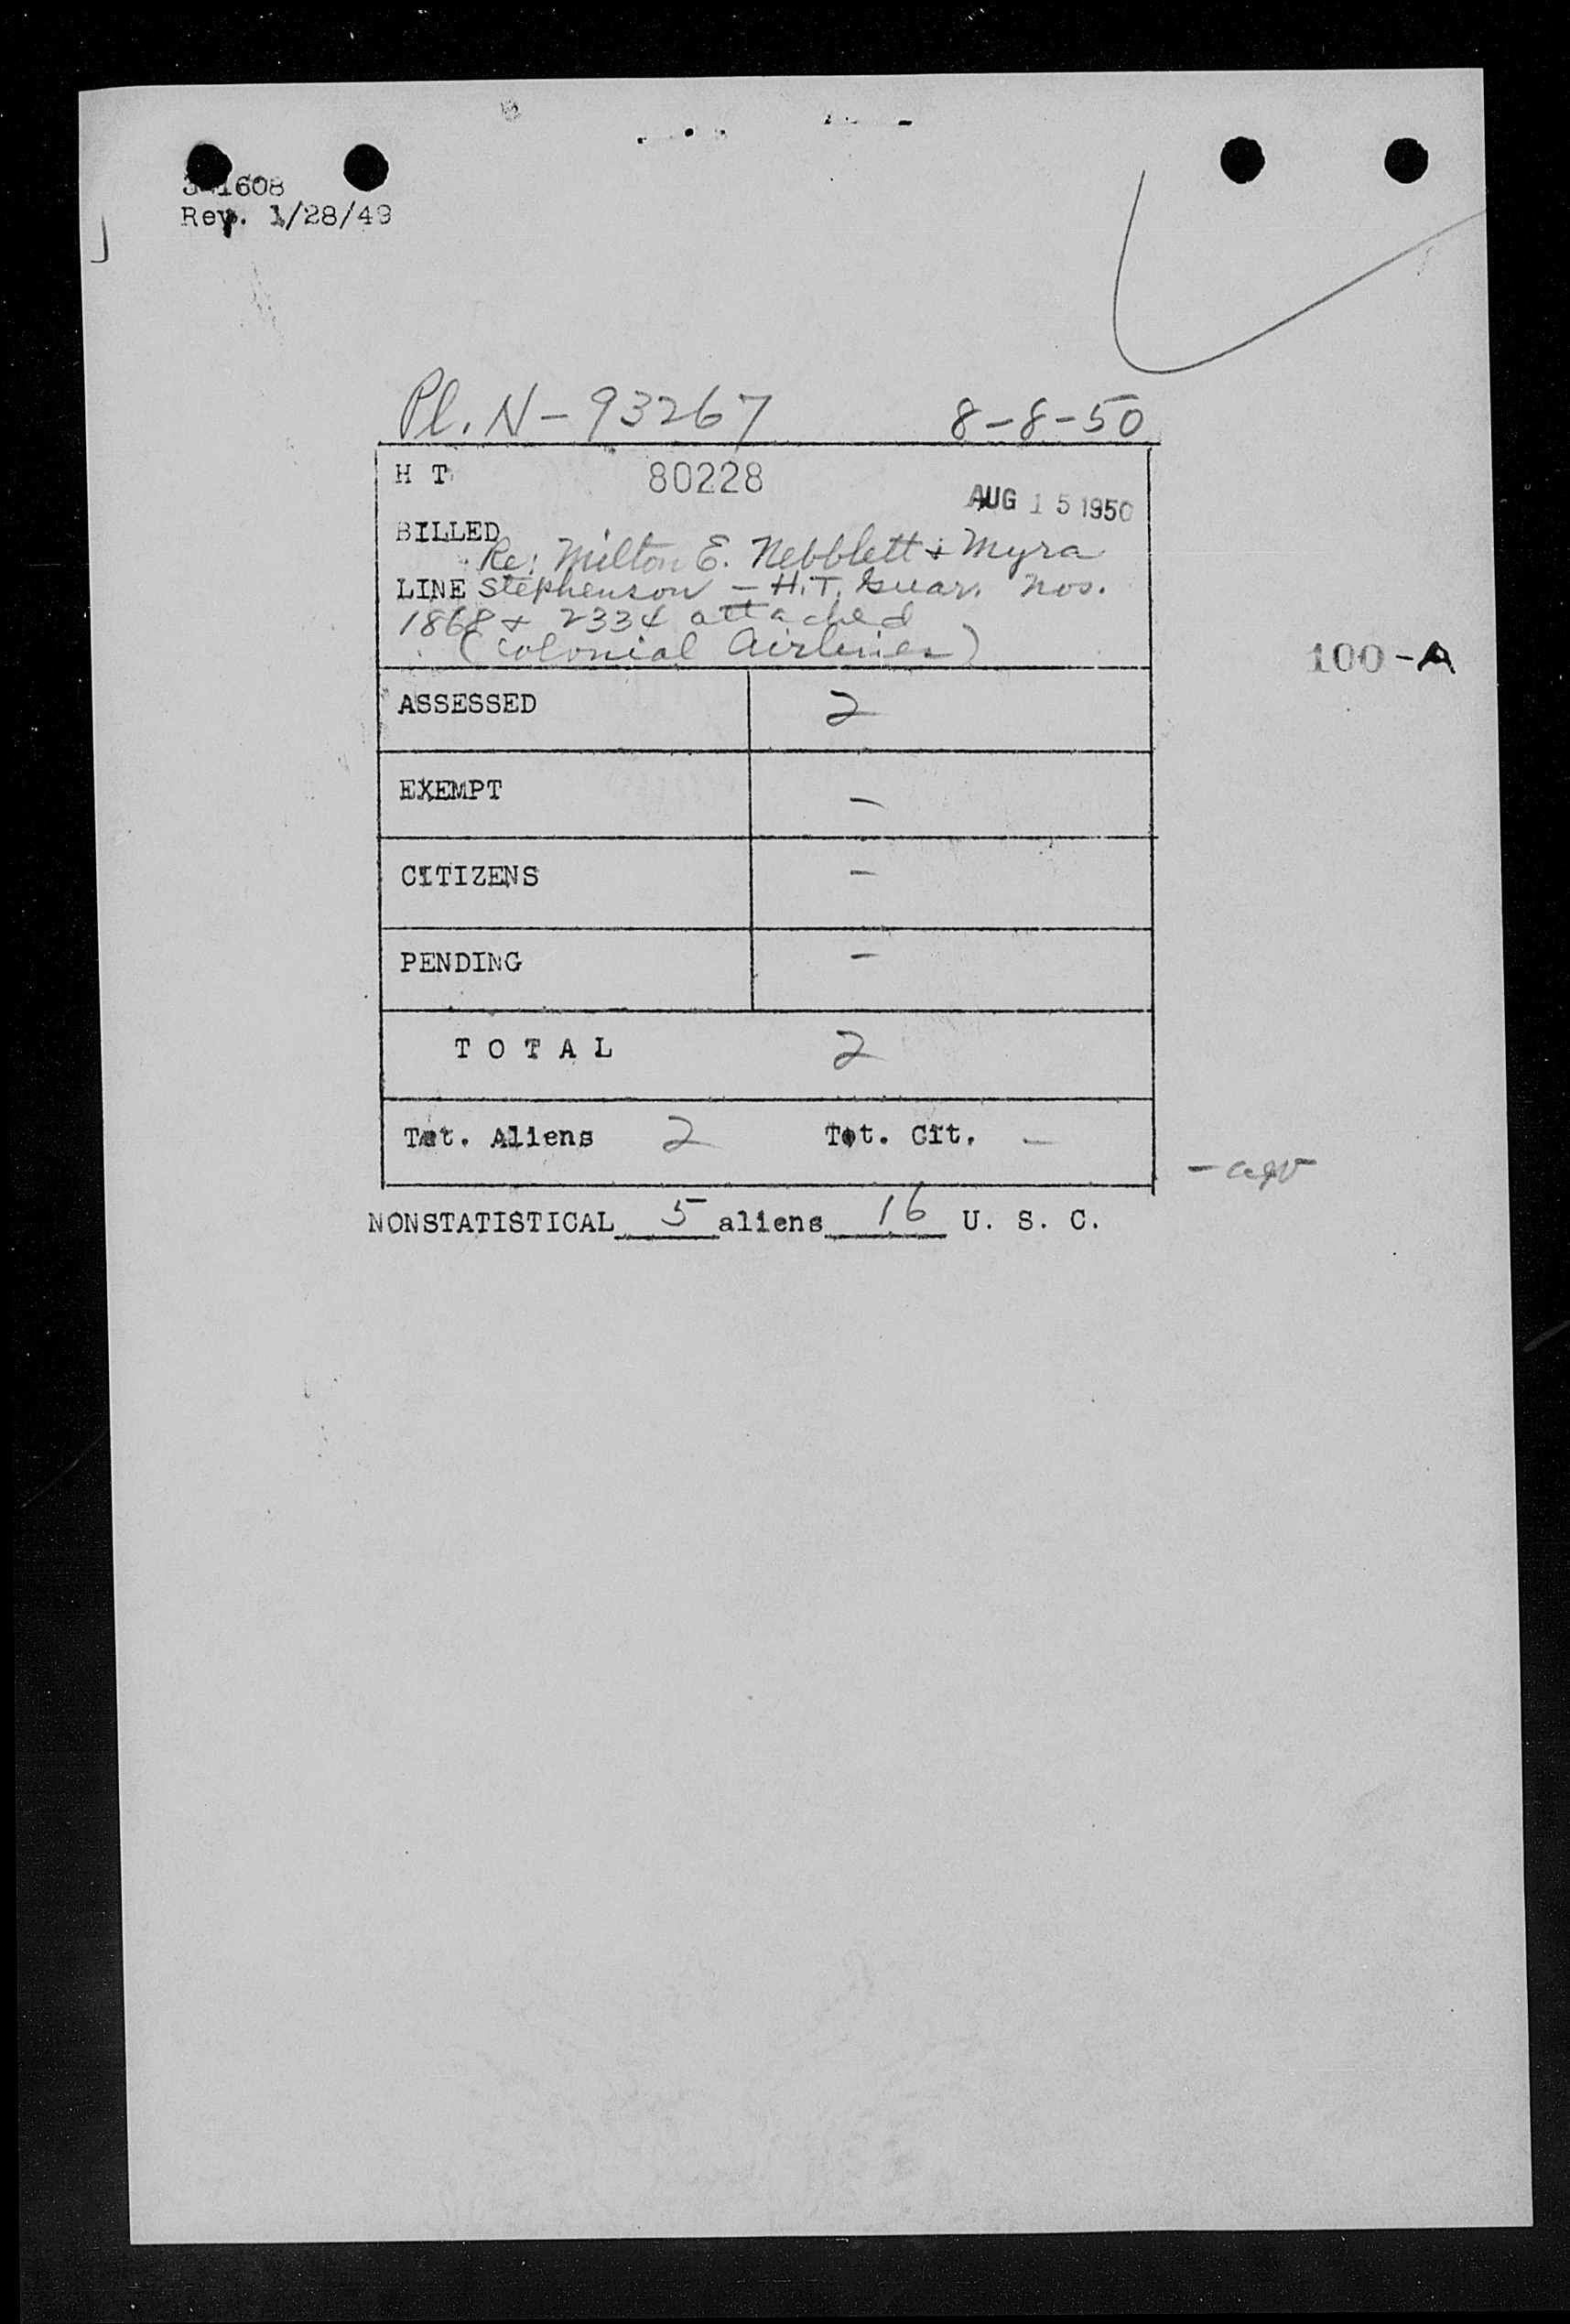 1608
Rev. 1/28/49
Pl. N-93267 8-8-50
H T 80228
AUG 15 1950
BILLED
Re: Milton E. Nebblett & Myra
LINE Stephenson - H.T. Guar. Nos.
1868 & 2334 attached
(Colonial Airlines)
100-A
ASSESSED 2
EXEMPT -
CITIZENS -
PENDING -
T O T A L 2
Tot. Aliens 2 Tot. Cit. -
NONSTATISTICAL 5 aliens 16 U. S. C.